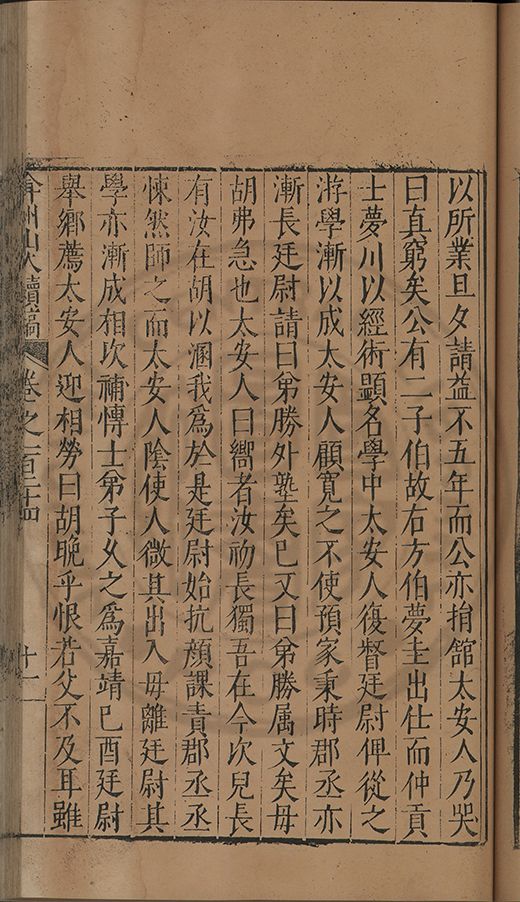 以所業旦夕請益不五年而公亦捐舘太安人乃哭
曰真窮矣公有二子伯故右方伯夢圭出仕而仲貢
士夢川以經術顯名學中太安人復督廷尉俾從之
游學漸以成太安人顧寬之不使預家秉時郡丞亦
漸長廷尉請曰弟勝外塾矣已又曰弟勝属文矣毋
胡弗急也太安人曰嚮者汝初長獨吾在今次兒長
有汝在胡以溷我爲於是廷尉始抗顔課責郡丞丞
悚然師之而太安人陰使人微其出入毋離廷尉其
學亦漸成相次補博士弟子乆之爲嘉靖已酉廷尉
舉鄉薦太安人迎相勞曰胡晚乎恨若父不及耳雖
弇州山人續稿 卷之一百二十四 十一